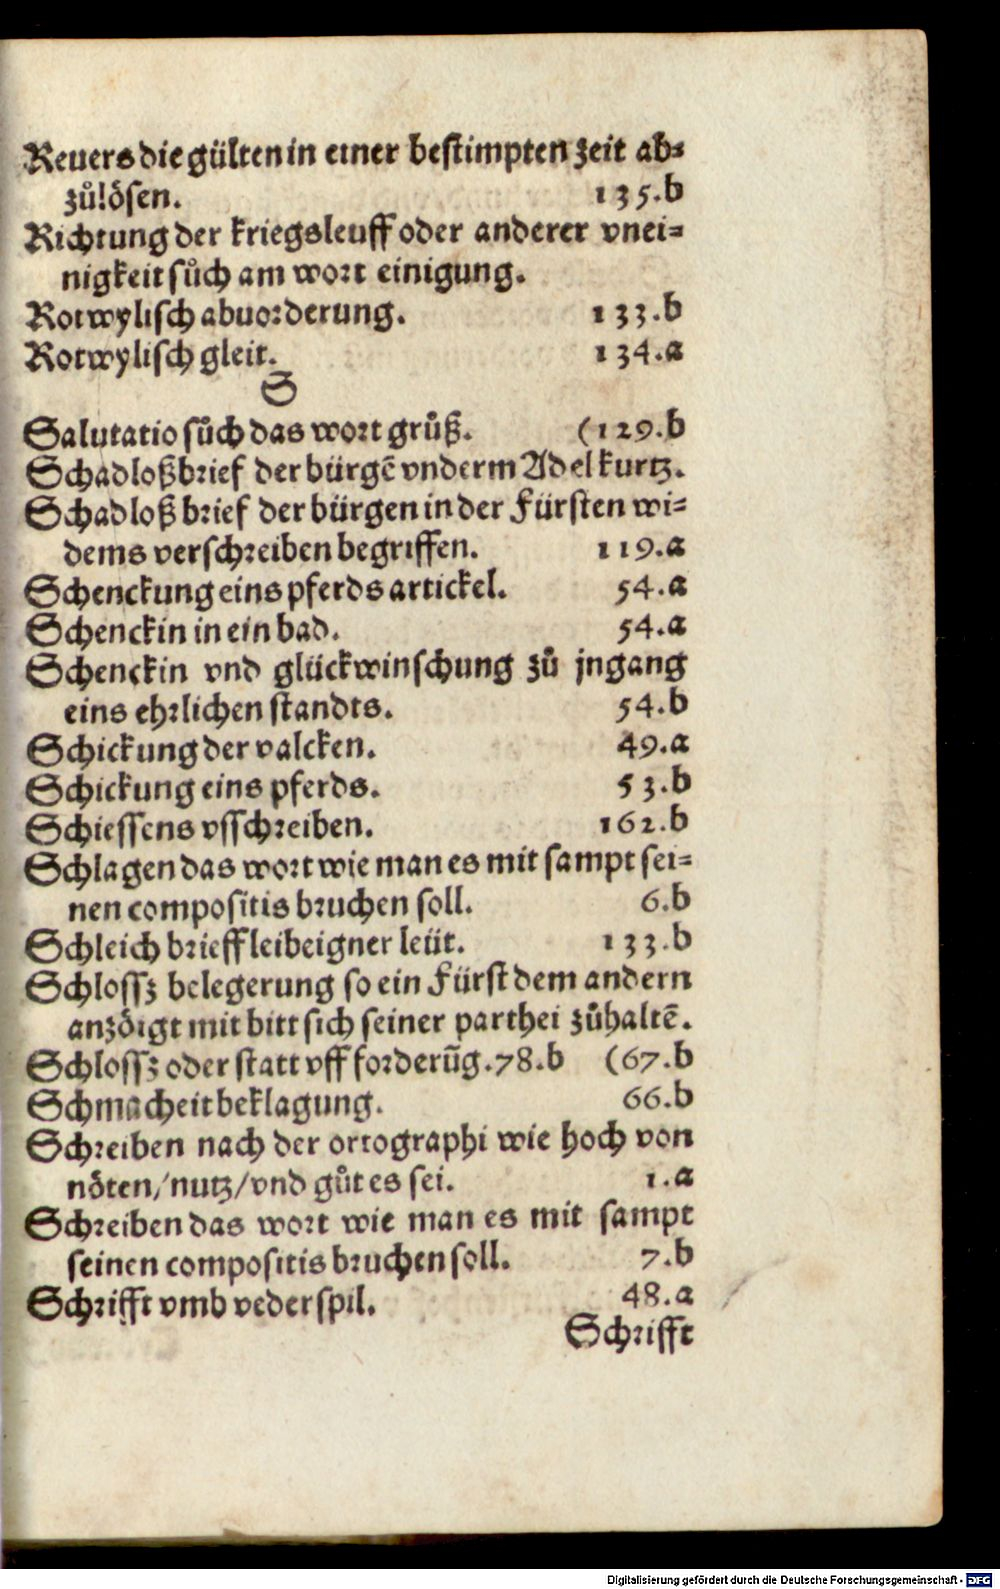 Reuers die gülten in einer bestimpten zeit ab⸗
zůlösen. 135.b
Richtung der kriegsleuff oder anderer vnei⸗
nigkeit sůch am wort einigung.
Rotwylisch abuorderung. 133.b
Rotwylisch gleit. 134.a
S
Salutatio sůch das wort grůß. (129.b
Schadloßbrief der bürgē vnderm Adel kurtz.
Schadloß brief der bürgen in der Fürsten wi⸗
dems verschreiben begriffen. 119.a
Schenckung eins pferds artickel. 54.a
Schenckin in ein bad. 54.a
Schenckin vnd glückwinschung zů jngang
eins ehrlichen standts. 54.b
Schickung der valcken. 49.a
Schickung eins pferds. 53.b
Schiessens vsschreiben. 162.b
Schlagen das wort wie man es mit sampt sei⸗
nen compositis bruchen soll. 6.b
Schleich brieff leibeigner leüt. 133.b
Schlossz belegerung so ein Fürst dem andern
anzöigt mit bitt sich seiner parthei zůhaltē.
Schlossz oder statt vff forderūg. 78.b (67.b
Schmacheit beklagung. 66.b
Schreiben nach der ortographi wie hoch von
nöten/nutz/vnd gůt es sei. 1.a
Schreiben das wort wie man es mit sampt
seinen compositis bruchen soll. 7.b
Schrifft vmb vederspil. 48.a
Schrifft
Digitalisierung gefördert durch die Deutsche Forschungsgemeinschaft - DFG